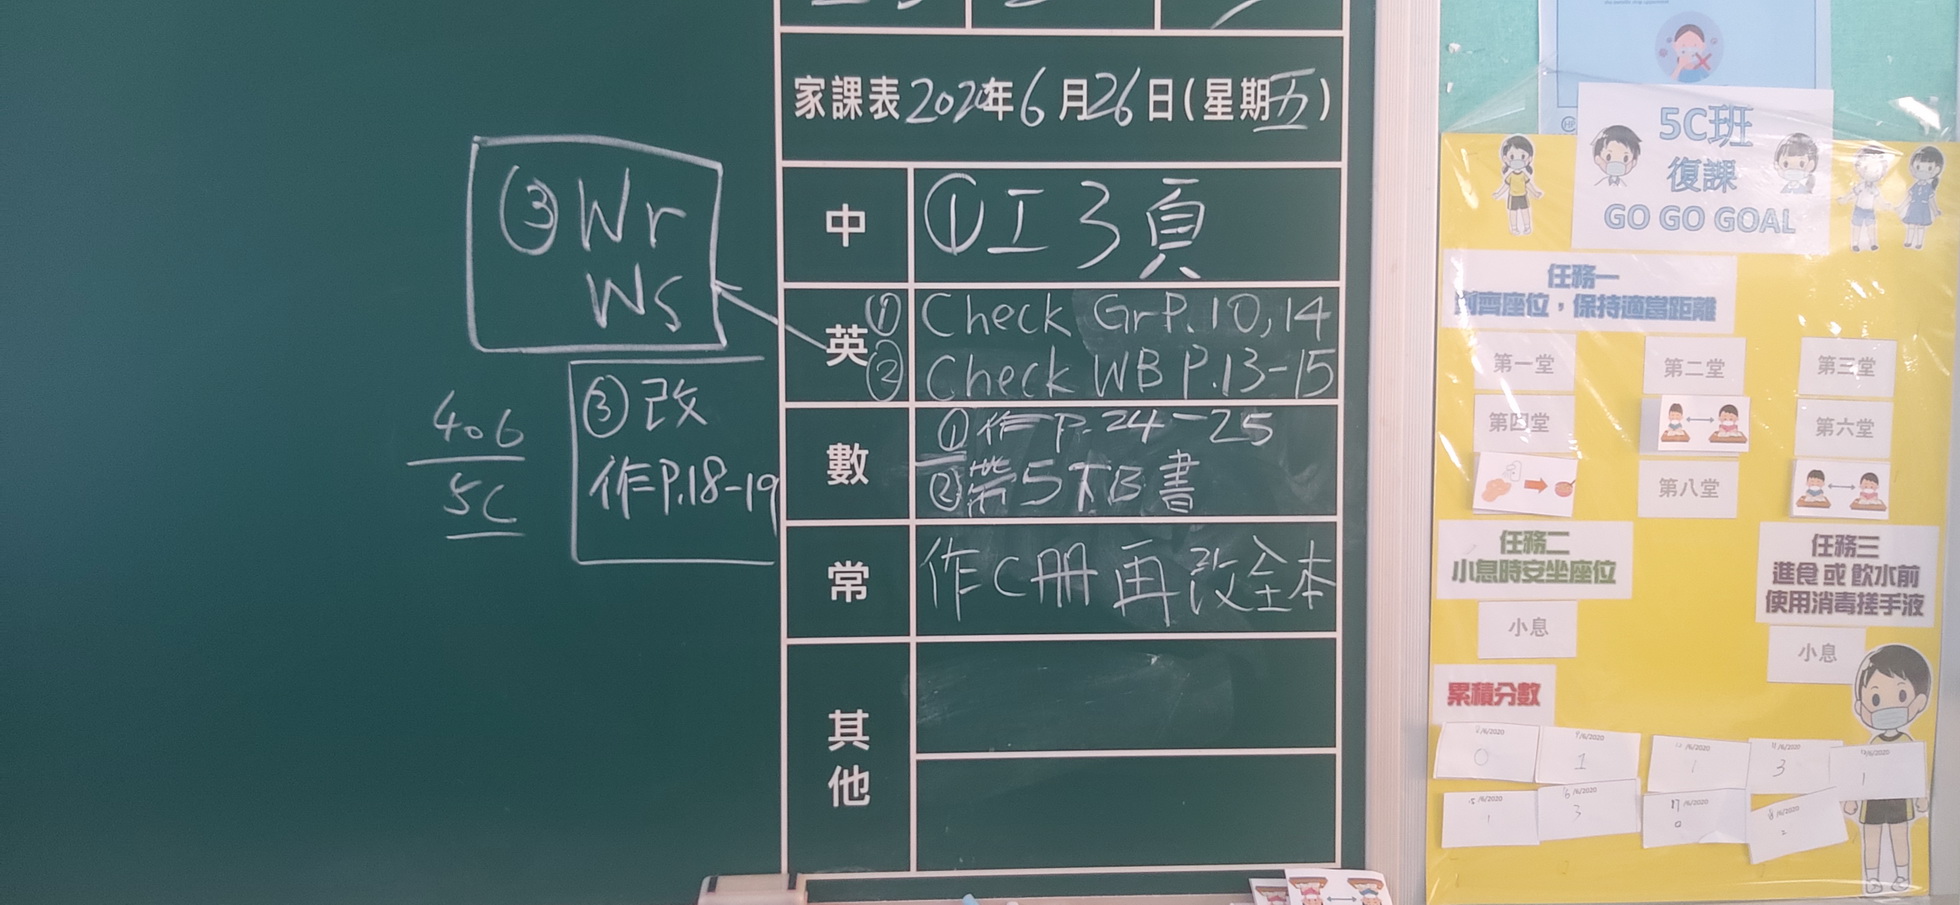 家課表2020年6月26日(星期五)
中
①工3頁
英
① Check Gr P.10,14
② Check WB P.13-15
③ Wr
Ws
數
①作 P.24-25
②第5TB書
③改
作P.18-19
406
5C
常
作C冊再改全本
其他
5C班
復課
GO GO GOAL
任務一
齊座位，保持適當距離
第一堂
第二堂
第三堂
第四堂
第六堂
第八堂
任務二
小息時安坐座位
小息
任務三
進食 或 飲水前
使用消毒搓手液
小息
累積分數
/6/2020
0
9/6/2020
1
/6/2020
1
11/6/2020
3
/6/2020
1
15/6/2020
1
16/6/2020
3
17/6/2020
0
18/6/2020
2